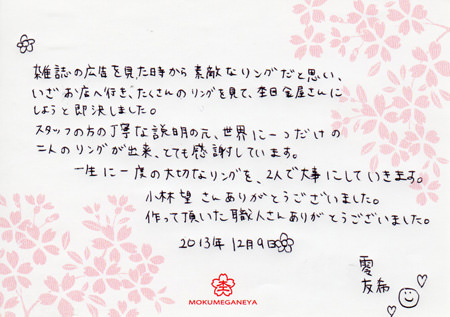 雑誌の広告を見た時から素敵なリングだと思い、
いざお店へ行き、たくさんのリングを見て、杢目金屋さんに
しようと即決しました。
スタッフの方の丁寧な説明の元、世界に一つだけの
二人のリングが出来、とても感謝しています。
一生に一度の大切なリングを、2人で大事にしていきます。
小林望さんありがとうございました。
作って頂いた職人さんありがとうございました。
2013年12月9日
零
友希
杢
MOKUMEGANEYA